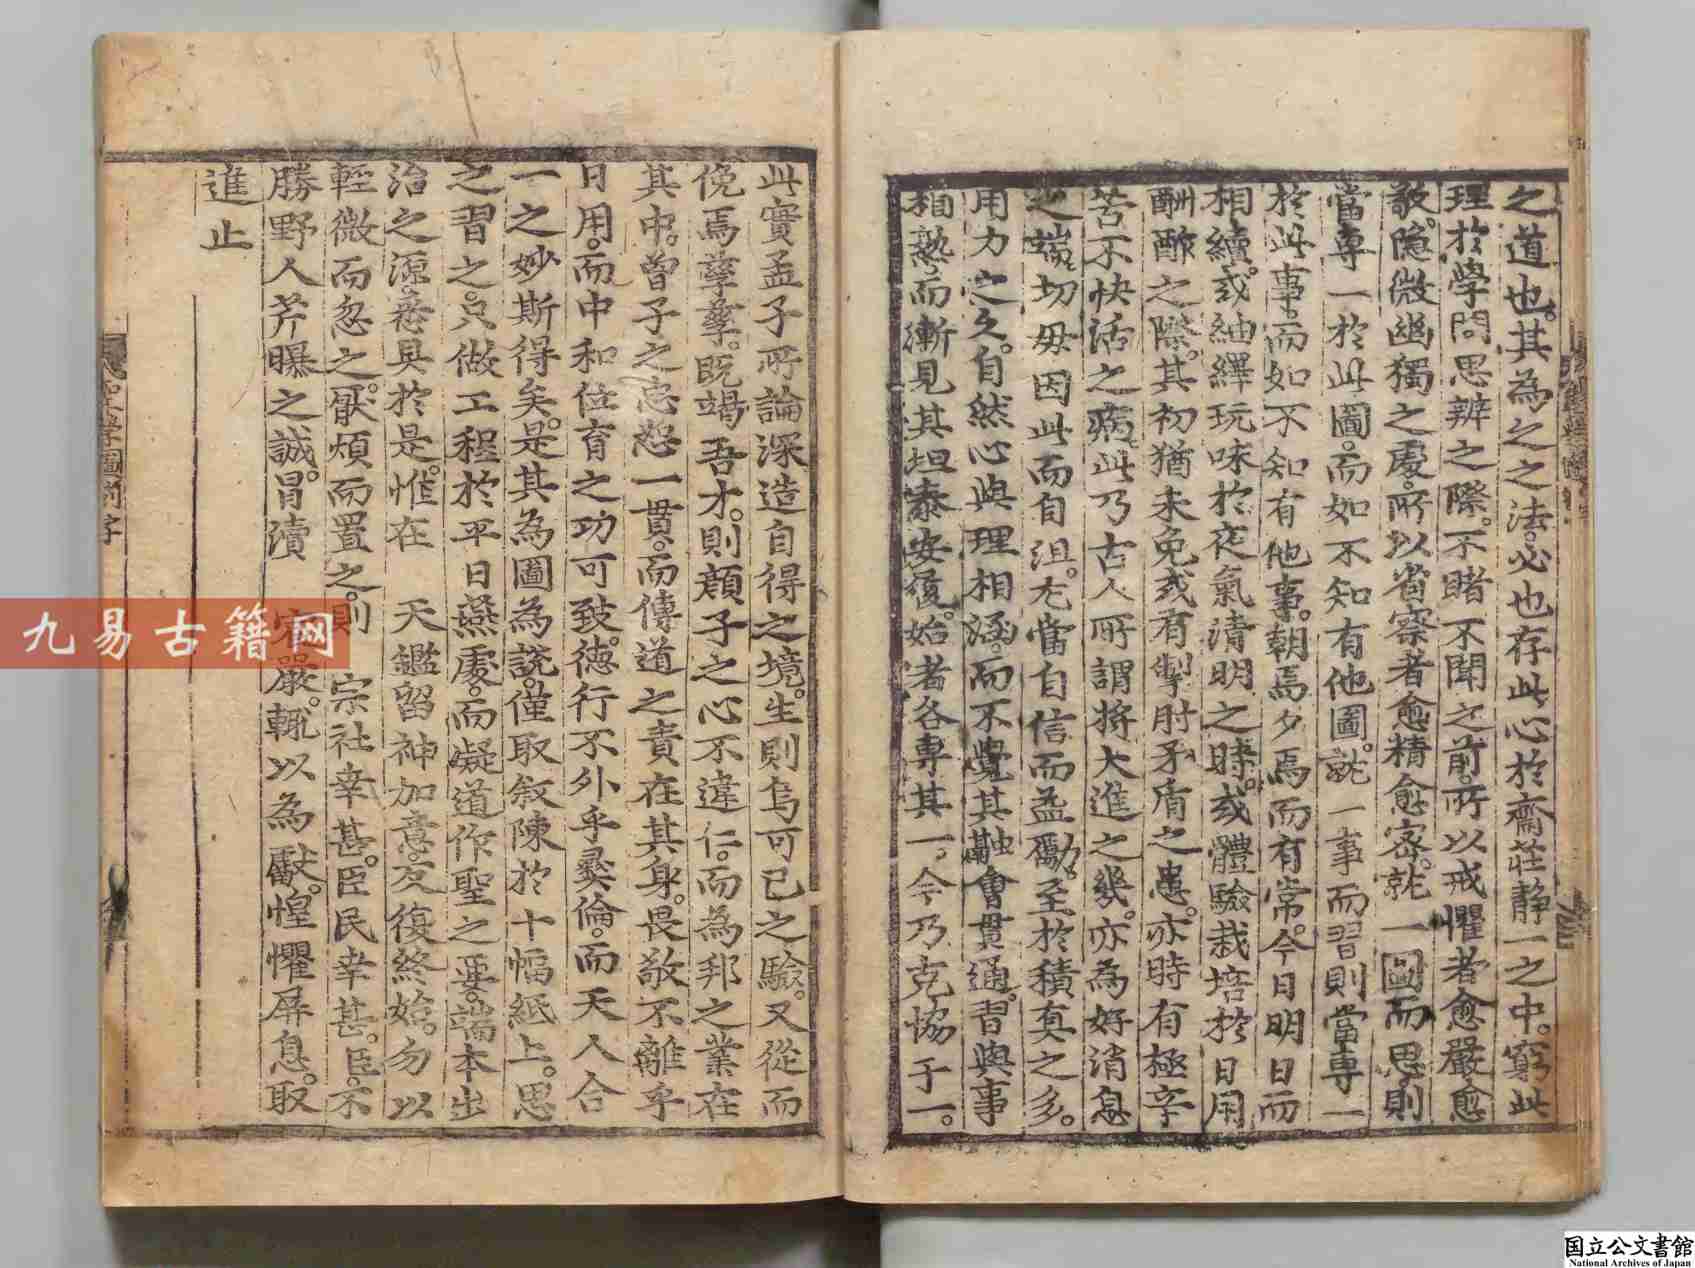 之道也。其為之之法。必也存此心於齋莊靜一之中。窮此
理於學問思辨之際。不睹不聞之前。所以戒懼者愈嚴愈
敬。隱微幽獨之處。所以省察者愈精愈密。就一圖而思。則
當專一於此圖。而如不知有他圖。就一事而習。則當專一
於此事。而如不知有他事。朝焉夕焉而有常。今日明日而
相續。或紬繹玩味於夜氣清明之時。或體驗栽培於日用
酬酢之際。其初猶未免或有掣肘矛盾之患。亦時有極辛
苦不快活之病。此乃古人所謂將大進之幾。亦為好消息
之端。切毋因此而自沮。尤當自信而益勵。至於積真之多。
用力之久。自然心與理相涵。而不覺其融會貫通。習與事
相熟。而漸見其坦泰安履。始者各專其一。今乃克協于一。
此實孟子所論深造自得之境。生則烏可已之驗。又從而
俛焉孳孳。既竭吾才。則顏子之心不違仁。而為邦之業在
其中。曾子之忠恕一貫。而傳道之責在其身。畏敬不離乎
日用。而中和位育之功可致。德行不外乎彝倫。而天人合
一之妙斯得矣。是其為圖為說。僅取敘陳於十幅紙上。思
之習之。只做工程於平日燕處。而凝道作聖之要。端本出
治之源。悉具於是。惟在 天鑑留神加意。反復終始。勿以
輕微而忽之。厭煩而置之。則 宗社幸甚。臣民幸甚。臣。不
勝野人芹曝之誠。冒瀆 宸嚴。輒以為獻。惶懼屏息。取
進止
九易古籍网
国立公文書館
National Archives of Japan